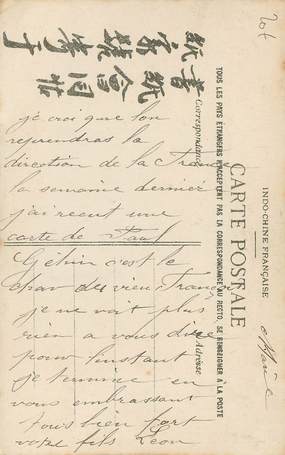 20f
INDO-CHINE FRANÇAISE
CARTE POSTALE
TOUS LES PAYS ÉTRANGERS N'ACCEPTENT PAS LA CORRESPONDANCE AU RECTO. SE RENSEIGNER À LA POSTE
Correspondance
Adresse
Marie
je croi que lon
reprendras la
direction de la France
la semaine dernier
j'ai recut une
carte de Paul
Géhin c'est le
du vieu
je ne voit plus
rien a vous dire
pour l'instant
je termine en
vous embrassant
tous bien fort
votre fils Léon